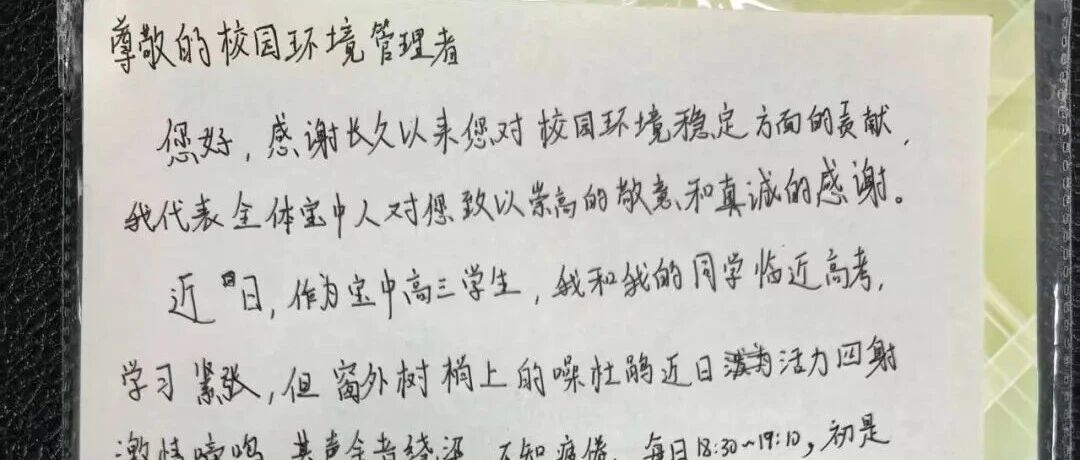 尊敬的校园环境管理者
您好，感谢长久以来您对校园环境稳定方面的贡献，
我代表全体宝中人对您致以崇高的敬意和真诚的感谢。
近日，作为宝中高三学生，我和我的同学临近高考，
学习紧张，但窗外树梢上的噪杜鹃近日活力四射
激情啼鸣，其声余音绕梁，不知疲倦，每日18:30~19:10，初是